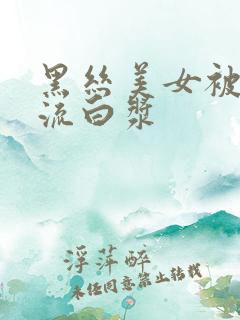 黑丝美女被
流白浆
浮萍醉
未经同意禁止转载